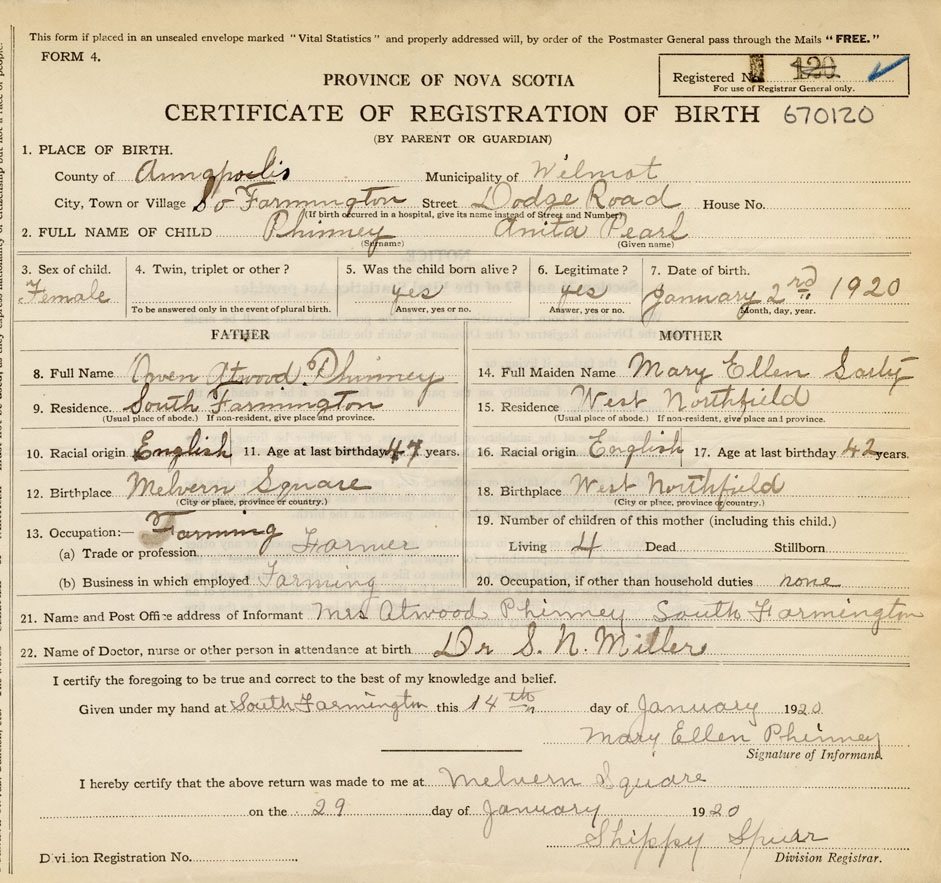 This form if placed in an unsealed envelope marked "Vital Statistics" and properly addressed will, by order of the Postmaster General pass through the Mails "FREE."
FORM 4.
Registered No. 120
For use of Registrar General only.
PROVINCE OF NOVA SCOTIA
CERTIFICATE OF REGISTRATION OF BIRTH 670120
(BY PARENT OR GUARDIAN)
1. PLACE OF BIRTH.
County of Annapolis Municipality of Wilmot
City, Town or Village So Farmington Street Dodge Road House No.
(If birth occurred in a hospital, give its name instead of Street and Number)
2. FULL NAME OF CHILD Phinney Anita Pearl
(Surname) (Given name)
3. Sex of child. 4. Twin, triplet or other? 5. Was the child born alive? 6. Legitimate? 7. Date of birth.
Female yes yes January 2rd 1920
To be answered only in the event of plural birth. Answer, yes or no. Answer, yes or no. Month, day, year.
FATHER MOTHER
8. Full Name Owen Atwood Phinney 14. Full Maiden Name Mary Ellen
9. Residence South Farmington 15. Residence West Northfield
(Usual place of abode.) If non-resident, give place and province. (Usual place of abode.) If non-resident, give place and province.
10. Racial origin English 11. Age at last birthday 47 years. 16. Racial origin English 17. Age at last birthday 42 years.
12. Birthplace Melvern Square 18. Birthplace West Northfield
(City or place, province or country.) (City or place, province or country.)
13. Occupation:— Farming 19. Number of children of this mother (including this child.)
(a) Trade or profession Farmer Living 4 Dead Stillborn
(b) Business in which employed Farming 20. Occupation, if other than household duties none
21. Name and Post Office address of Informant Mrs Atwood Phinney South Farmington
22. Name of Doctor, nurse or other person in attendance at birth Dr S. N. Miller
I certify the foregoing to be true and correct to the best of my knowledge and belief.
Given under my hand at South Farmington this 14th day of January 1920
Mary Ellen Phinney
Signature of Informant.
I hereby certify that the above return was made to me at Melvern Square
on the 29 day of January 1920
Shippy Spurr
Division Registrar.
Division Registration No.